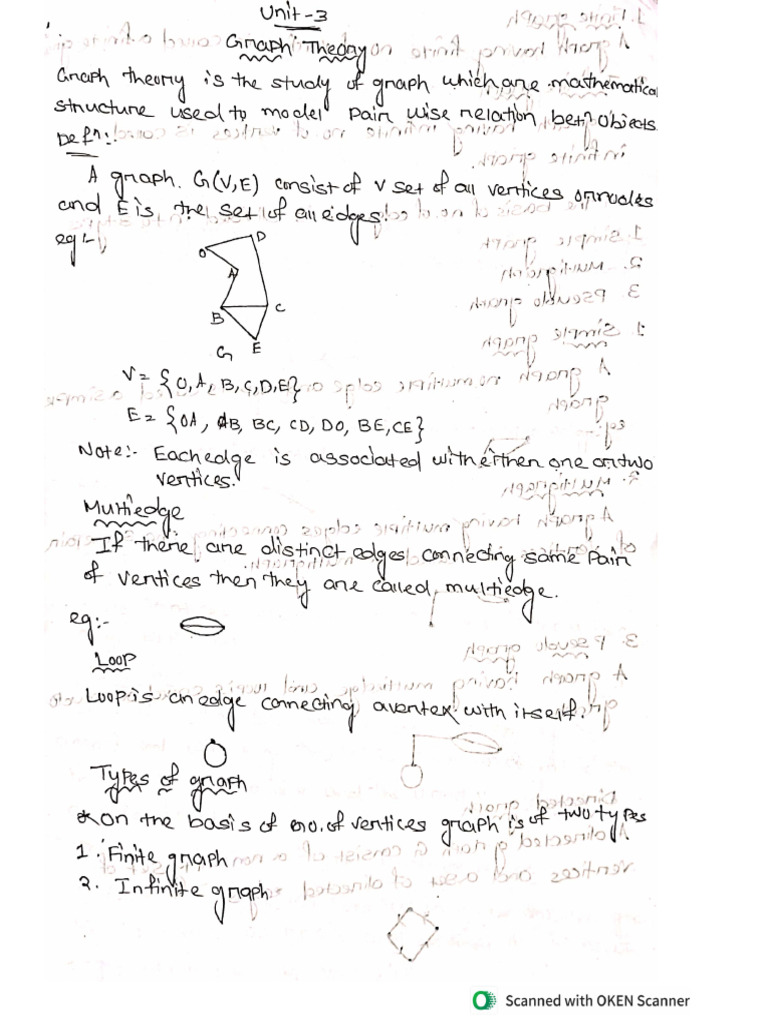 Unit-3
Graph Theory
Graph theory is the study of graph which are mathematical
structure used to model pair wise relation betⁿ objects.
Defⁿ:-
A graph. G(V,E) consist of V set of all vertices or nodes
and E is the set of all edges.
eg:-
D
O
A
B
C
E
G
V = {O, A, B, C, D, E}
E = {OA, AB, BC, CD, DO, BE, CE}
Note:- Each edge is associated with either one or two
vertices.
Multiedge
If there are distinct edges connecting same pair
of vertices then they are called multiedge.
eg:-
Loop
Loop is an edge connecting a vertex with itself.
Types of graph
* On the basis of no. of vertices graph is of two types
1. Finite graph
2. Infinite graph
Scanned with OKEN Scanner